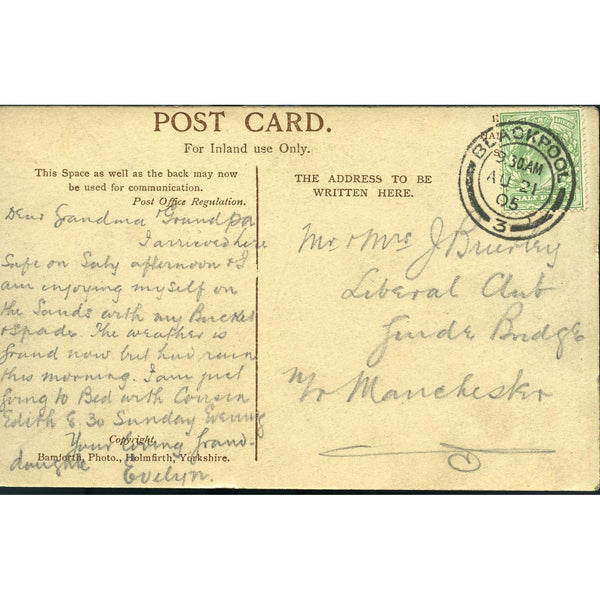 POST CARD.
For Inland use Only.
This Space as well as the back may now
be used for communication.
Post Office Regulation.
THE ADDRESS TO BE
WRITTEN HERE.
BLACKPOOL
30AM
AU 21
05
3
HALF P
Dear Grandma & Grandpa
I arrived here
Safe on Saty afternoon & I
am enjoying myself on
the Sands with my Bucket
& Spade. The weather is
grand now but had rain
this morning. I am just
going to Bed with Cousin
Edith 8.30 Sunday Evening
Your loving Grand-
daughter
Evelyn.
Copyright.
Bamforth, Photo., Holmfirth, Yorkshire.
Mr & Mrs J Brierley
Liberal Club
Guide Bridge
Nr Manchester